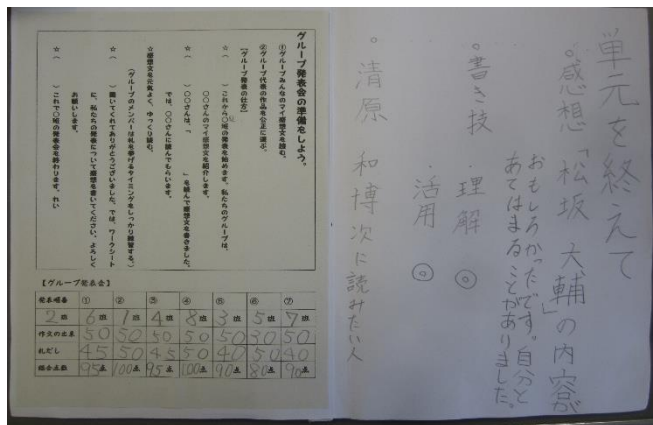 単元を終えて
○感想「松坂 大輔」の内容が
おもしろかったです。自分と
あてはまることがありました。
○書き技
・理解 ◎
・活用 ◎
○清原 和博 次に読みたい人
グループ発表会の準備をしよう。
①グループみんなのマイ感想文を読む。
②グループ代表の作品を公正に選ぶ。
【グループ発表の仕方】
☆( )これから○班の発表を始めます。私たちのグループは、
○○さんのマイ感想文を紹介します。
☆( )○○さんは、「 」を読んで感想文を書きました。
では、○○さんに読んでもらいます。
☆感想文を元気よく、ゆっくり読む。
(グループのメンバーは札を挙げるタイミングをしっかり練習する。)
☆( )聞いてくれてありがとうございました。では、ワークシート
に、私たちの発表について感想を書いてください。よろしく
お願いします。
☆( )これで○班の発表会を終わります。れい
【グループ発表会】
発表順番 ① ② ③ ④ ⑤ ⑥ ⑦
2班 6班 1班 4班 8班 3班 5班 7班
作文の出来 50 50 50 50 50 30 50
札だし 45 50 45 50 40 50 40
総合点数 95点 100点 95点 100点 90点 80点 90点